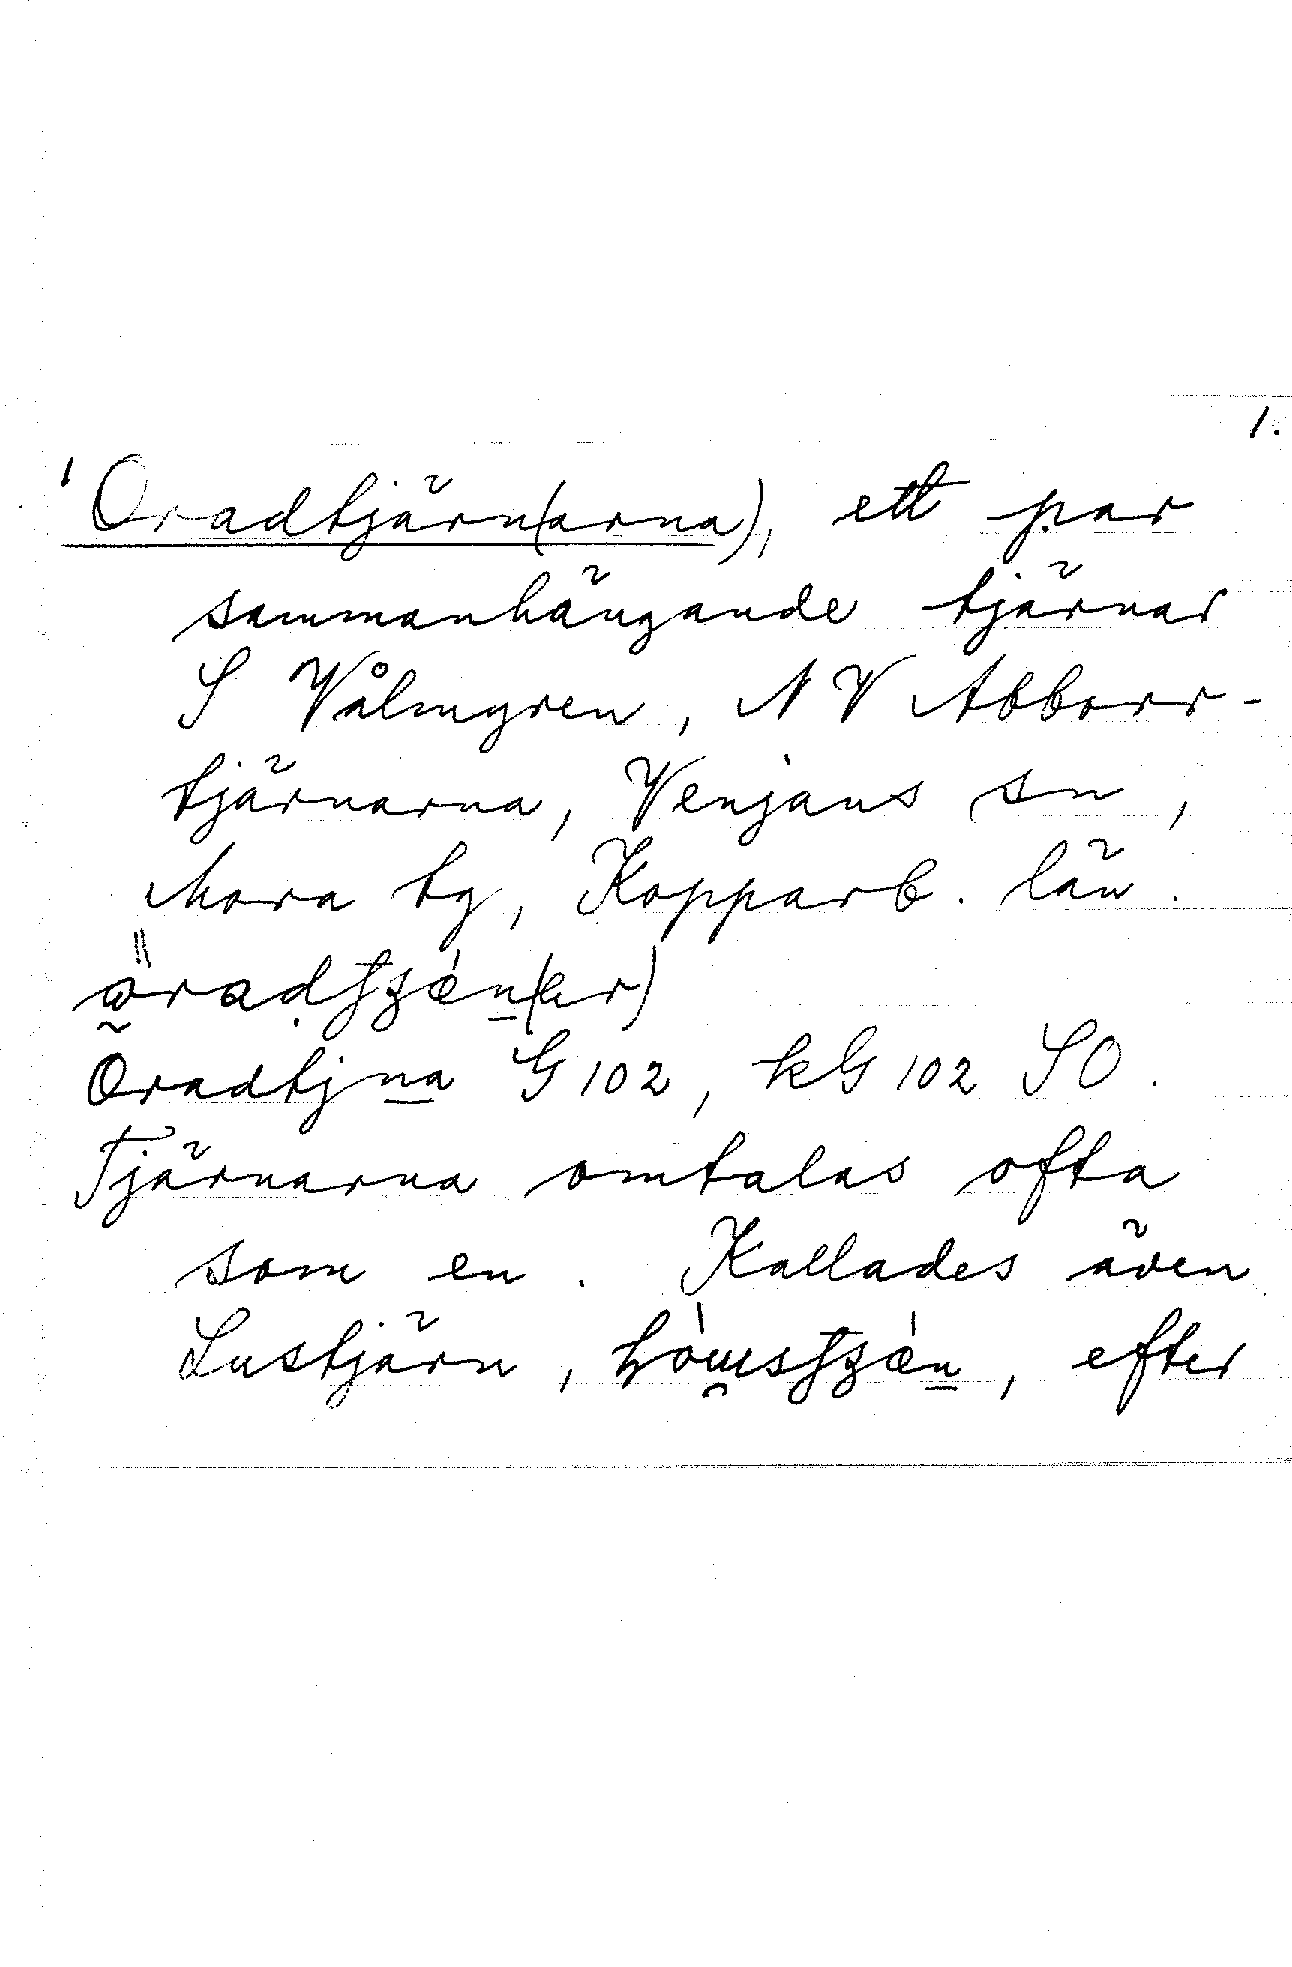 1.
Oradtjärn(arna), ett par
sammanhängande tjärnar
S Vålmyren, NV Abborr-
tjärnarna, Venjans sn,
Mora tg, Kopparb. län.
Oradtjna G 102, kG 102 SO.
Tjärnarna omtalas ofta
som en. Kallades även
Lustjärn, efter